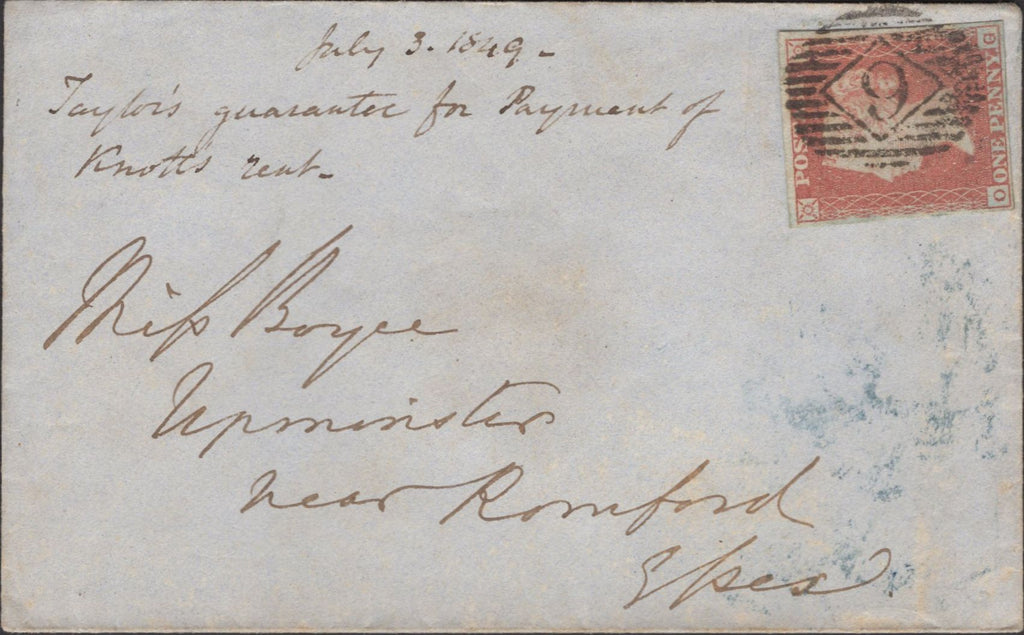 July 3. 1849 -
Taylor's guarantee for Payment of
Knott's rent -
9
POS
O ONE PENNY G
Miss Boyce
Upminster
near Romford
Essex